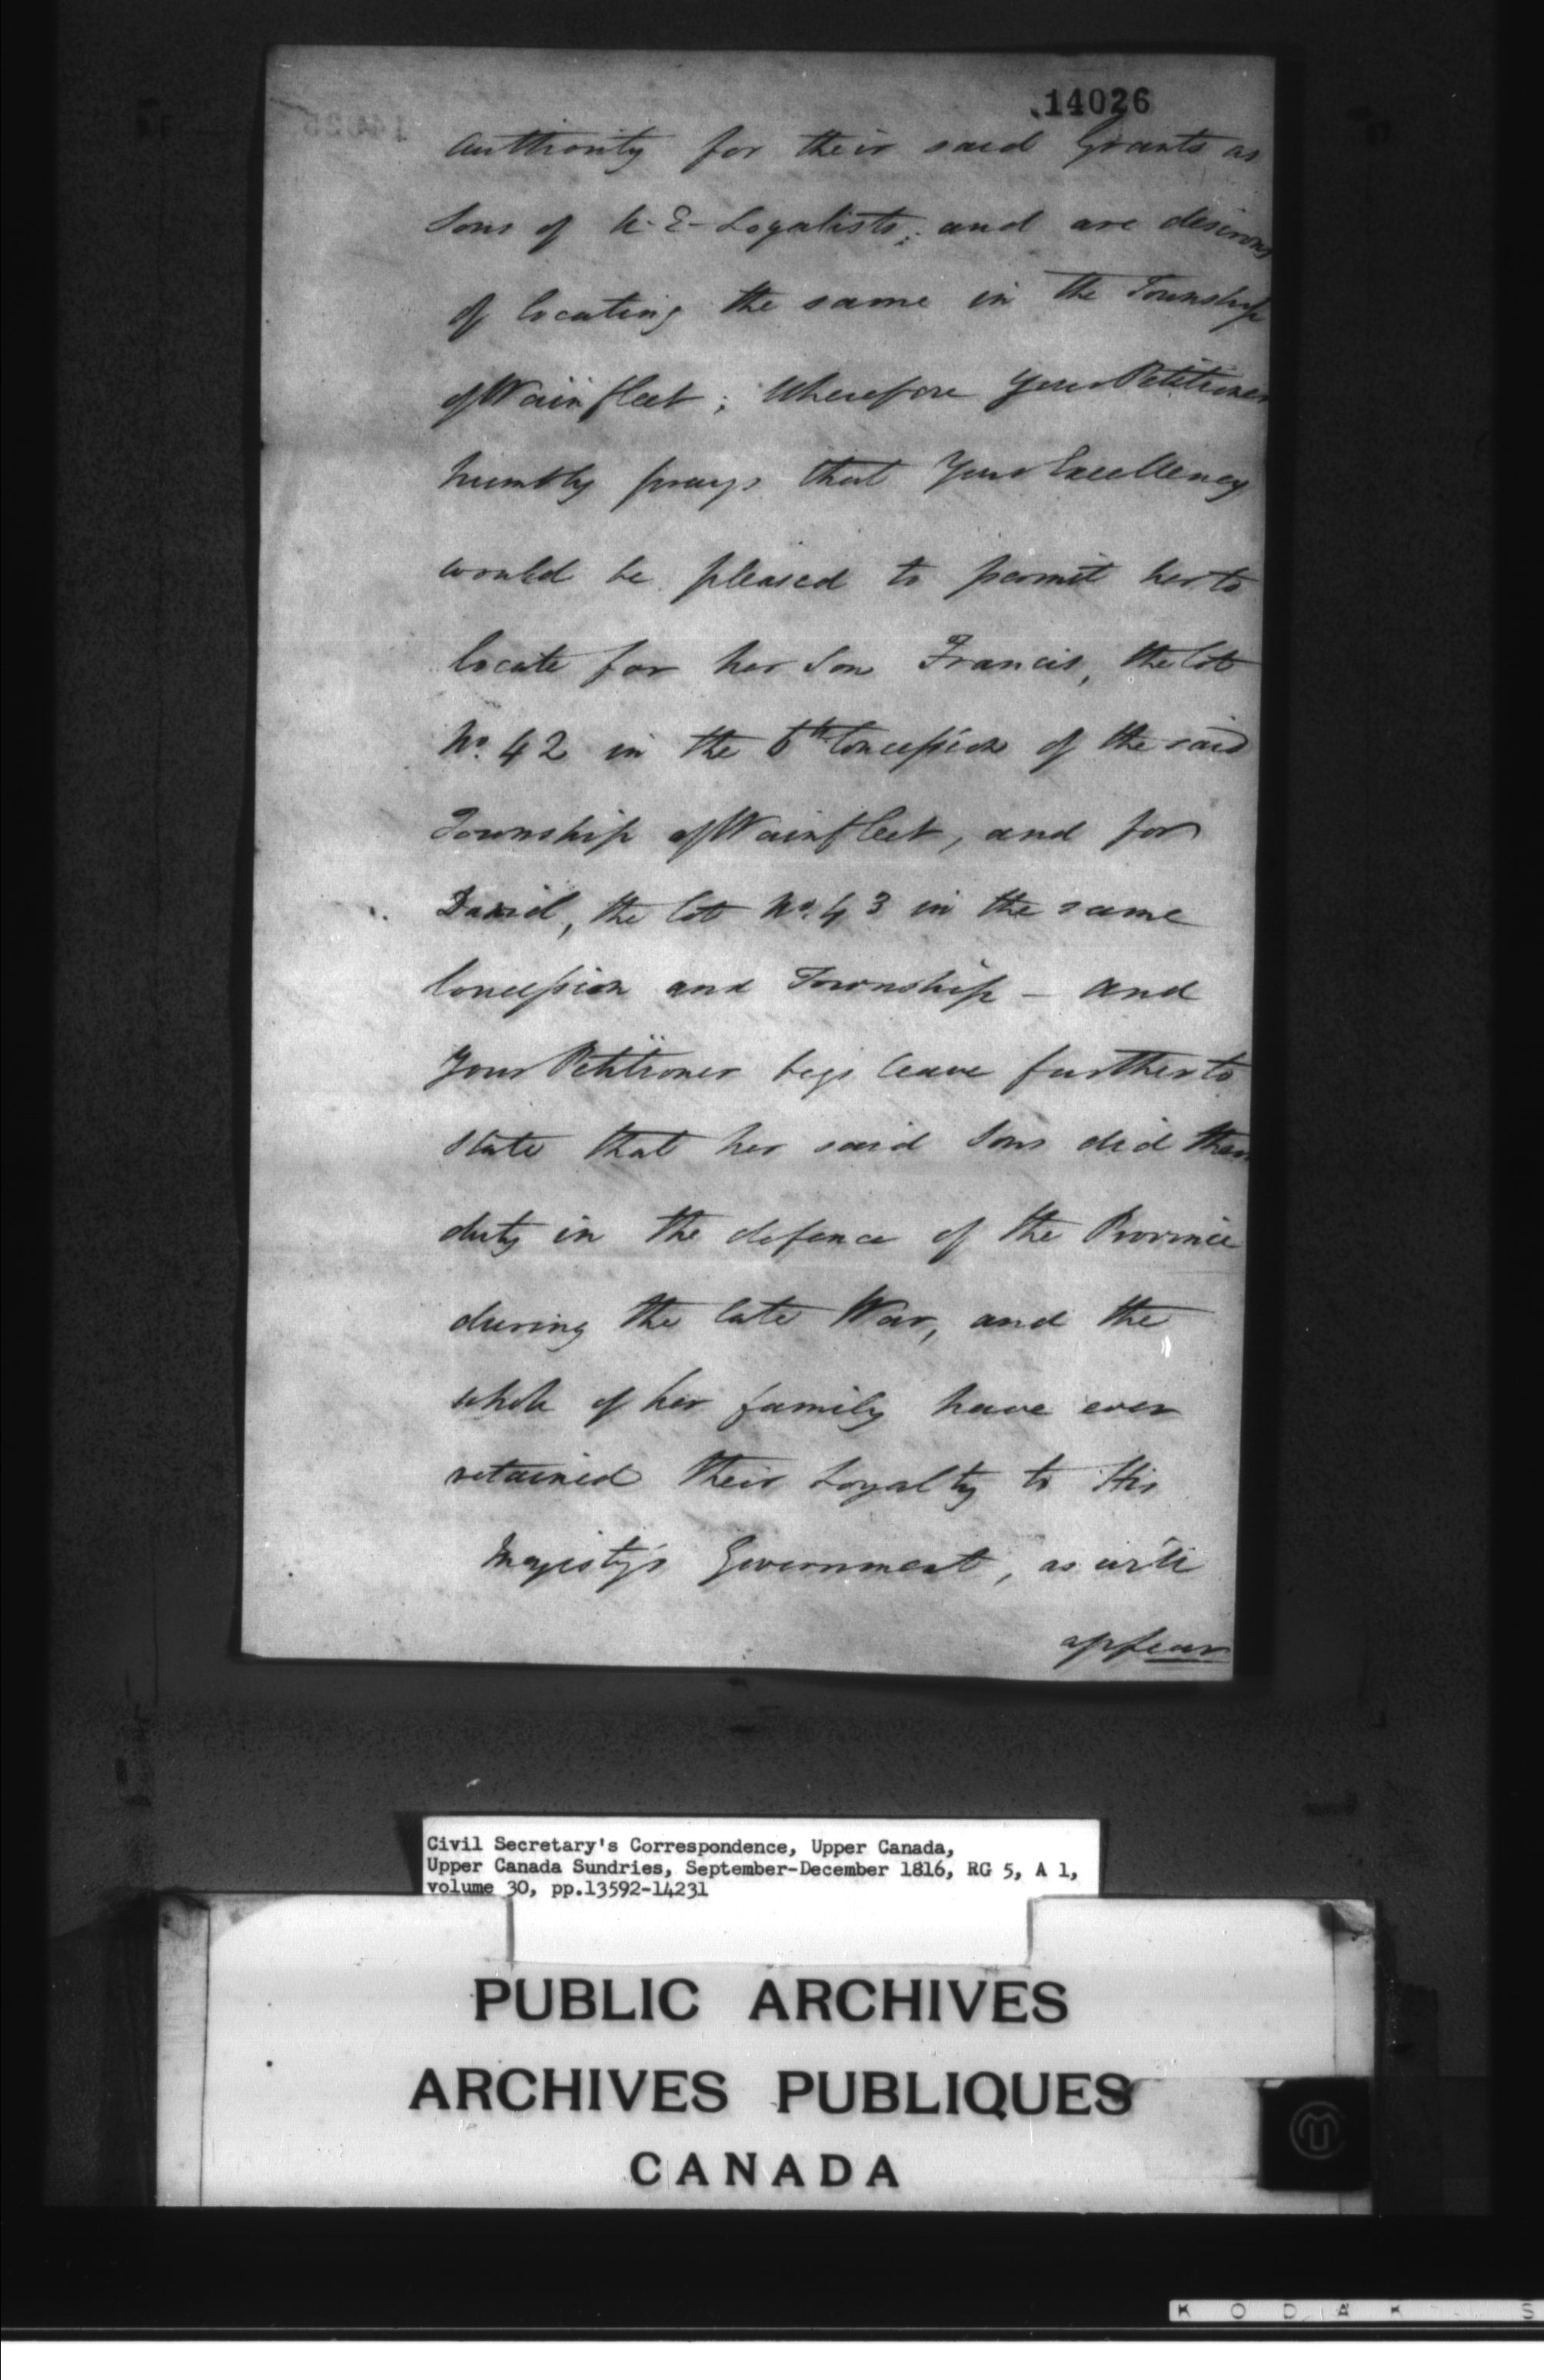 14026
authority for their said Grants as
Sons of U. E- Loyalists; and are desirous
of locating the same in the Township
of Wainfleet; Wherefore Your Petitioner
humbly prays that Your Excellency
would be pleased to permit her to
locate for her Son Francis, the lot
No. 42 in the 6th Concession of the said
Township of Wainfleet, and for
David, the lot No. 43 in the same
Concession and Township - and
Your Petitioner begs leave further to
state that her said Sons did their
duty in the defence of the Province
during the late War, and the
whole of her family have ever
retained their Loyalty to His
Majesty's Government, as will
appear
Civil Secretary's Correspondence, Upper Canada,
Upper Canada Sundries, September-December 1816, RG 5, A 1,
volume 30, pp.13592-14231
PUBLIC ARCHIVES
ARCHIVES PUBLIQUES
CANADA
KODAK S